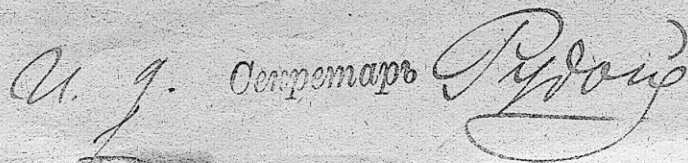 И. д. Секретарь Рудой